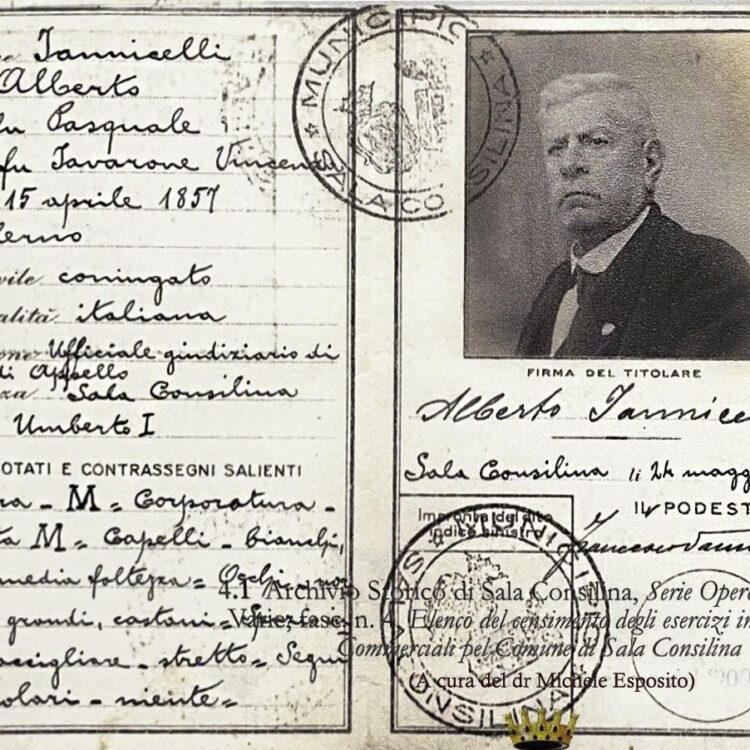 Iannicelli
Alberto
fu Pasquale
fu Tavarone
15 aprile 1857
coniugato
italiana
Ufficiale giudiziario di
di Appello
Sala Consilina
Umberto I
OTATI E CONTRASSEGNI SALIENTI
M = Corporatura -
M = Capelli - bianchi,
media foltezza = Occhi -
grandi, castani =
- stretto - Segni
- niente =
MUNICIPIO
SALA CONSILINA
FIRMA DEL TITOLARE
Alberto Iannice
Sala Consilina li 24 magg
IL PODEST
Impronta del dito
indice sinistro
4.1 Archivio Storico di Sala Consilina, Serie Oper
Varie, fasc. n. 4, Elenco del censimento degli esercizi in
Commerciali pel Comune di Sala Consilina
(A cura del dr Michele Esposito)